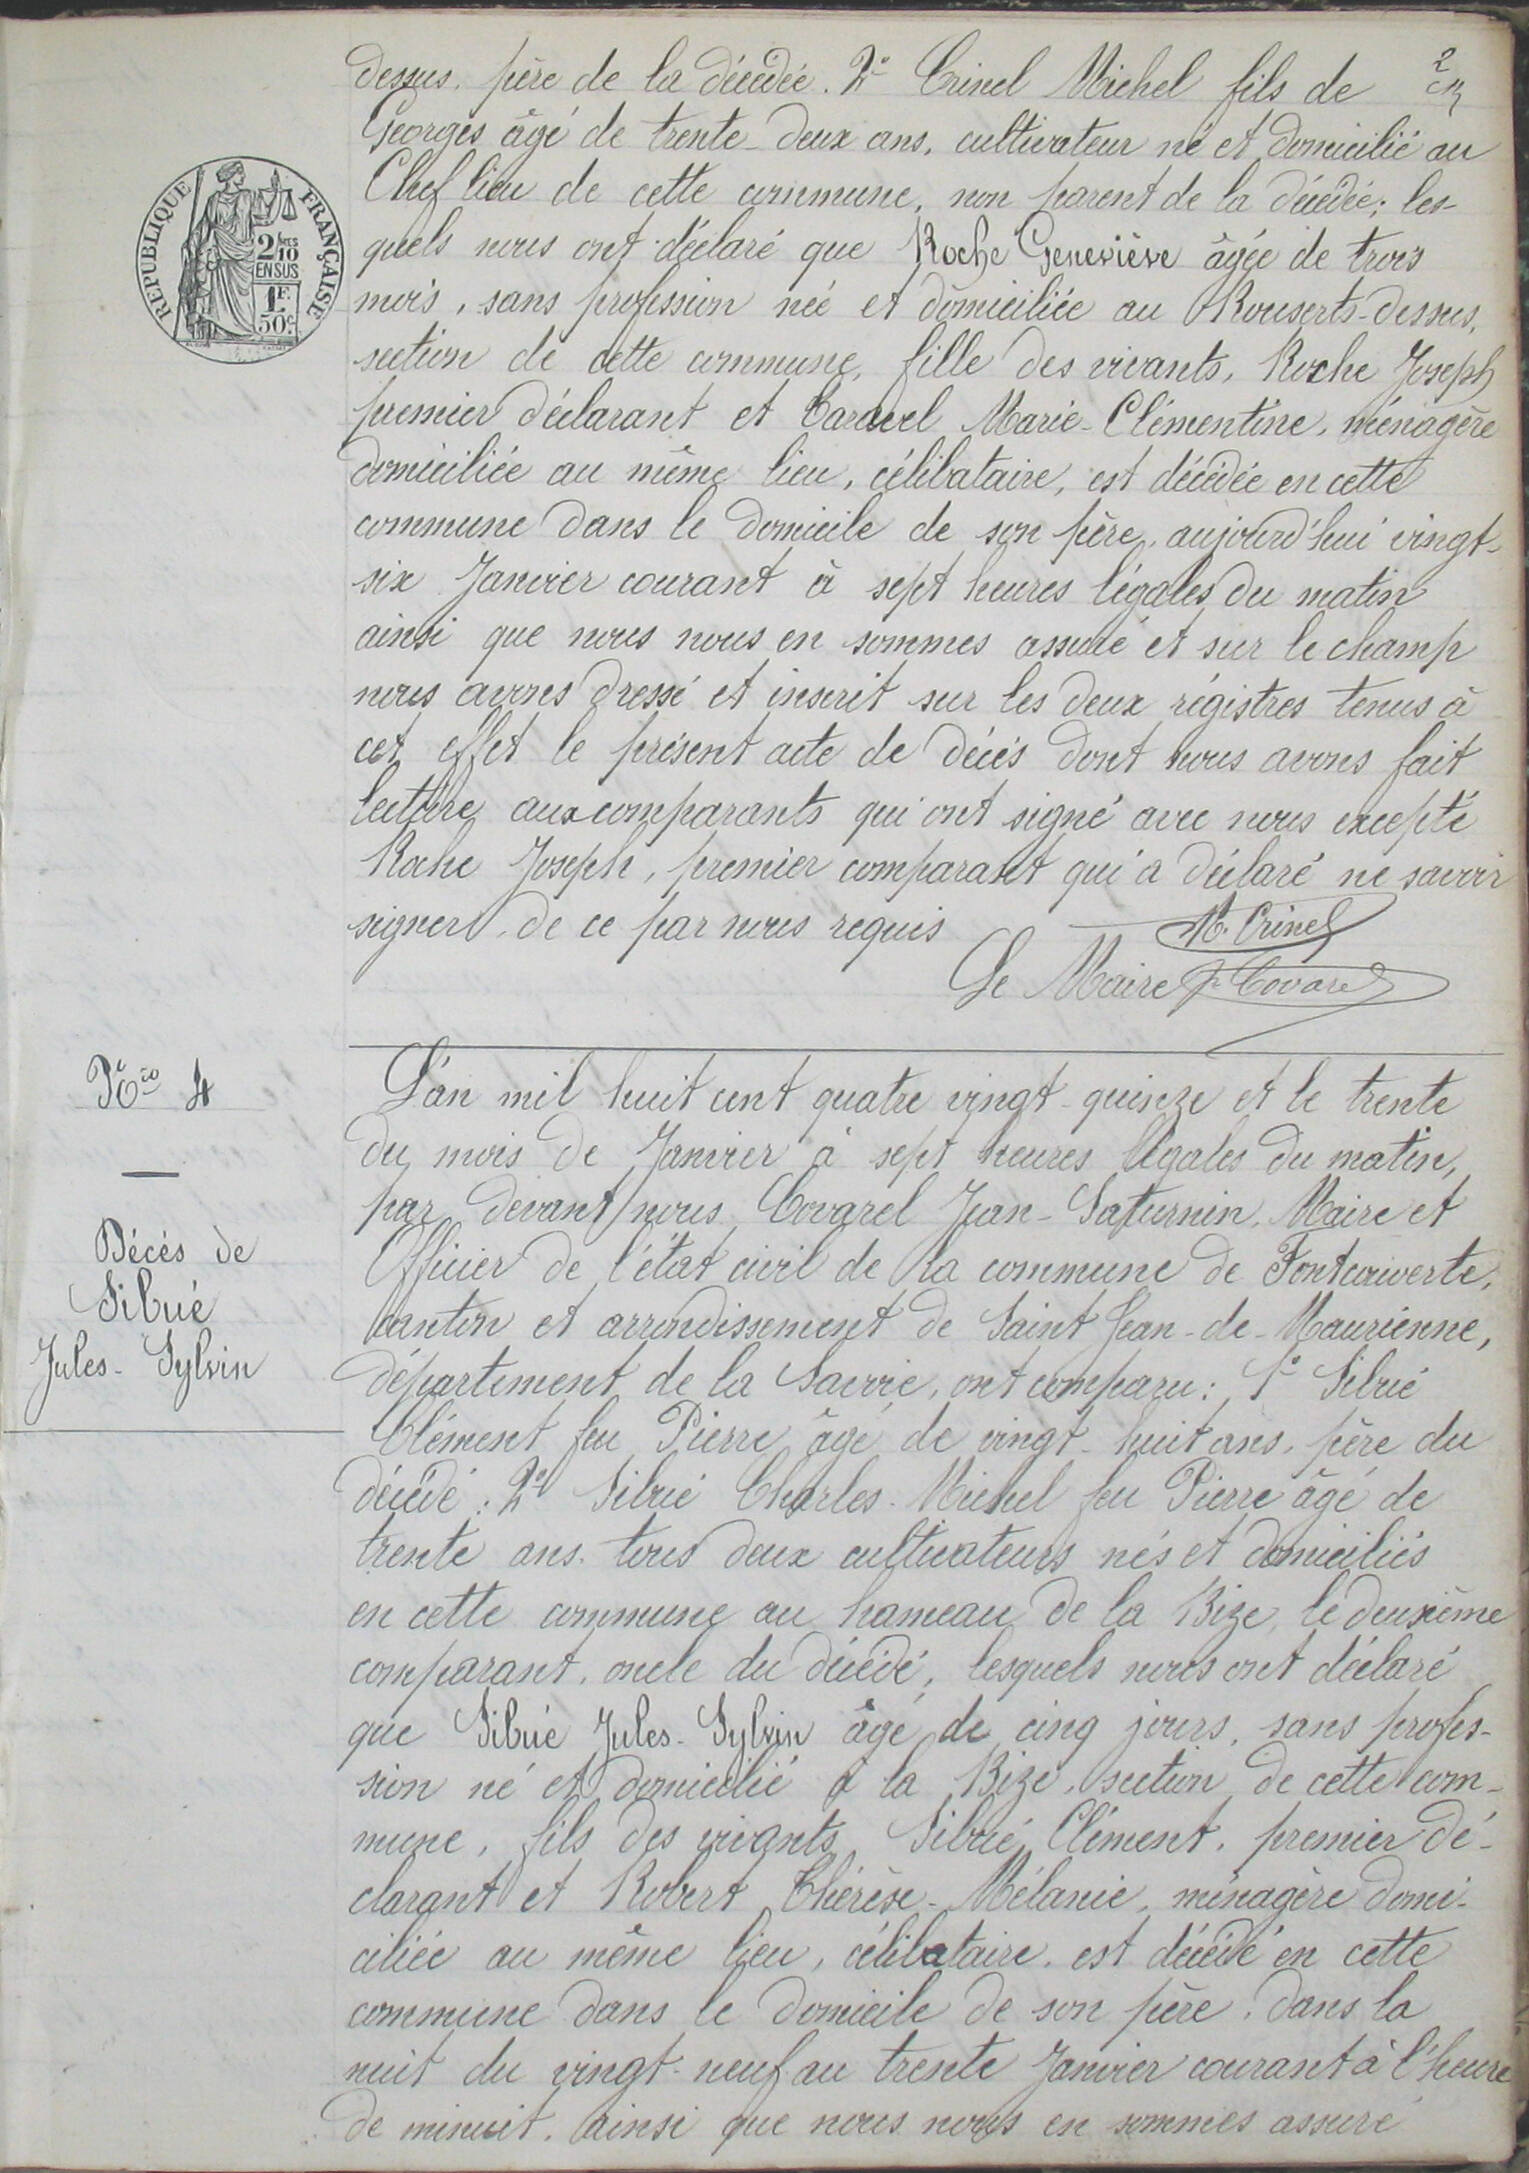 2
dessus. père de la décédée. 2° Crinel Michel fils de
Georges âgé de trente-deux ans, cultivateur né et domicilié au
Chef lieu de cette commune, non parent de la décédée; les-
quels nous ont déclaré que Roche Geneviève âgée de trois
mois, sans profession née et domiciliée au Rouserts-dessus,
section de cette commune, fille des vivants, Roche Joseph
premier déclarant et Caravel Marie-Clémentine, ménagère
domiciliée au même lieu, célibataire, est décédée en cette
commune dans le domicile de son père, aujourd'hui vingt-
six Janvier courant à sept heures légales du matin
ainsi que nous nous en sommes assuré et sur le champ
nous avons dressé et inscrit sur les deux régistres tenus à
cet effet le présent acte de décès dont nous avons fait
lecture aux comparants qui ont signé avec nous excepté
Roche Joseph, premier comparant qui a déclaré ne savoir
signer, de ce par nous requis
M. Crinel
Le Maire J. Covarel
REPUBLIQUE FRANÇAISE
2/10
EN SUS
1F
50c
N°ro 4
Décès de
Sibué
Jules-Sylvin
L'an mil huit cent quatre vingt-quinze et le trente
du mois de Janvier à sept heures légales du matin,
par devant nous, Covarel Jean-Saturnin, Maire et
Officier de l'état civil de la commune de Fontcouverte,
canton et arrondissement de Saint Jean-de-Maurienne,
département de la Savoie, ont comparu: 1° Sibué
Clément feu Pierre âgé de vingt-huit ans, père du
décédé: 2° Sibué Charles-Michel feu Pierre âgé de
trente ans. tous deux cultivateurs nés et domiciliés
en cette commune au hameau de la Bize, le deuxième
comparant, oncle du décédé, lesquels nous ont déclaré
que Sibué Jules-Sylvin âgé de cinq jours, sans profes-
sion né et domicilié à la Bize, section de cette com-
mune, fils des vivants Sibué Clément, premier dé-
clarant et Robert Thérèse-Mélanie, ménagère domi-
ciliée au même lieu, célibataire, est décédé en cette
commune dans le domicile de son père, dans la
nuit du vingt-neuf au trente Janvier courant à l'heure
de minuit. ainsi que nous nous en sommes assuré